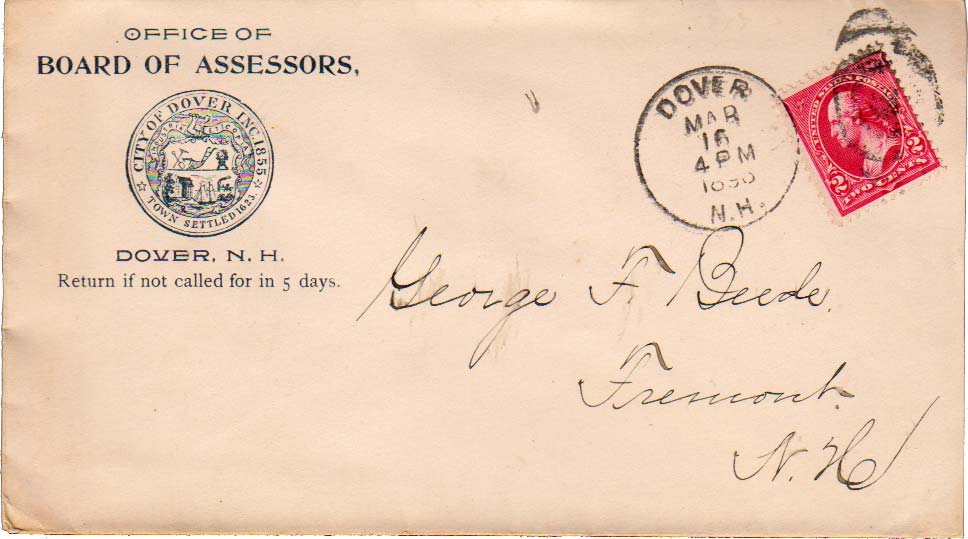 OFFICE OF
BOARD OF ASSESSORS,
CITY OF DOVER INC. 1855
TOWN SETTLED 1623.
DOVER, N. H.
Return if not called for in 5 days.
DOVER
MAR
16
4 PM
N.H.
UNITED STATES POSTAGE
2 TWO CENTS 2
George F Beede.
Fremont.
N. H